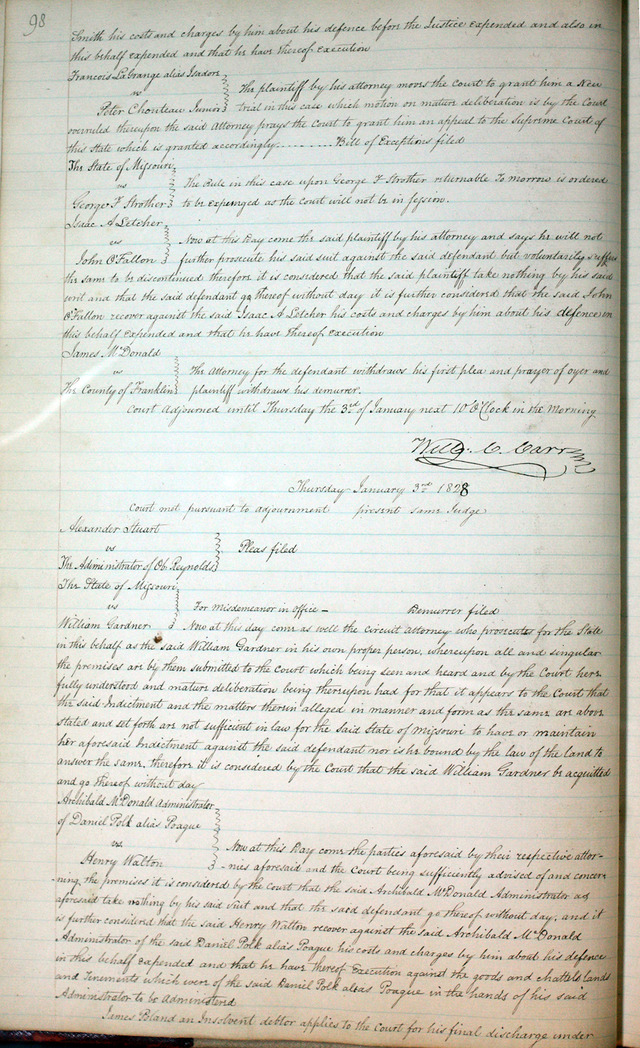 98
Smith his costs and charges by him about his defence before the Justice expended and also in
this behalf expended and that he have thereof execution
Francois LaGrange alias Isadore
vs
Peter Chouteau Junior
The plaintiff by his attorney moves the Court to grant him a New
trial in this case which motion on mature deliberation is by the Court
overruled thereupon the said Attorney prays the Court to grant him an appeal to the Supreme Court of
this State which is granted accordingly - - - - - - - Bill of Exceptions filed
The State of Missouri
vs
George F Strother
The Rule in this case upon George F Strother returnable To morrow is ordered
to be expunged as the court will not be in session.
Isaac A Letcher
vs
John O'Fallon
Now at this Day come the said plaintiff by his attorney and says he will not
further prosecute his said suit against the said defendant but voluntarily suffers
the same to be discontinued therefore it is considered that the said plaintiff take nothing by his said
writ and that the said defendant go thereof without day it is further considered that the said John
O'Fallon recover against the said Isaac A Letcher his costs and charges by him about his defence in
this behalf expended and that he have thereof execution
James McDonald
vs
The County of Franklin
The Attorney for the defendant withdraws his first plea and prayer of oyer and
plaintiff withdraws his demurrer.
Court adjourned until Thursday the 3rd of January next 10 O'Clock in the Morning
Will. C. Carr
Thursday January 3rd 1828
Court met pursuant to adjournment present same Judge
Alexander Stuart
vs
The Administrator of Ob. Reynolds
Pleas filed
The State of Missouri
vs
William Gardner
For misdemeanor in office - Demurrer filed
Now at this day come as well the circuit Attorney who prosecutes for the State
in this behalf as the said William Gardner in his own proper person, whereupon all and singular
the premises are by them submitted to the court which being seen and heard and by the Court here
fully understood and mature deliberation being thereupon had for that it appears to the Court that
the said Indictment and the matters therein alleged in manner and form as the same are above
stated and set forth are not sufficient in law for the said State of Missouri to have or maintain
her aforesaid Indictment against the said defendant nor is he bound by the law of the land to
answer the same, therefore it is considered by the Court that the said William Gardner be acquitted
and go thereof without day
Archibald McDonald Administrator
of Daniel Polk alias Poague
vs
Henry Walton
Now at this Day come the parties aforesaid by their respective attor-
-nies aforesaid and the Court being sufficiently advised of and concer-
-ning the premises it is considered by the Court that the said Archibald McDonald Administrator as
aforesaid take nothing by his said suit and that the said defendant go thereof without day, and it
is further considered that the said Henry Walton recover against the said Archibald McDonald
Administrator of the said Daniel Polk alias Poague his costs and charges by him about his defence
in this behalf expended and that he have thereof Execution against the goods and chattels lands
and Tenements which were of the said Daniel Polk alias Poague in the hands of his said
Administrator to be Administered
James Poland an Insolvent debtor applies to the Court for his final discharge under